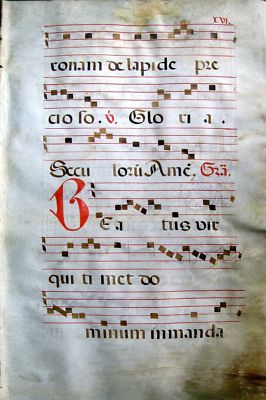 LVI
ronam de lapide pre
cioso. V. Glo ri a.
Secu lorū Amē. Gra.
B E a tus vir
qui ti met do
minum in manda